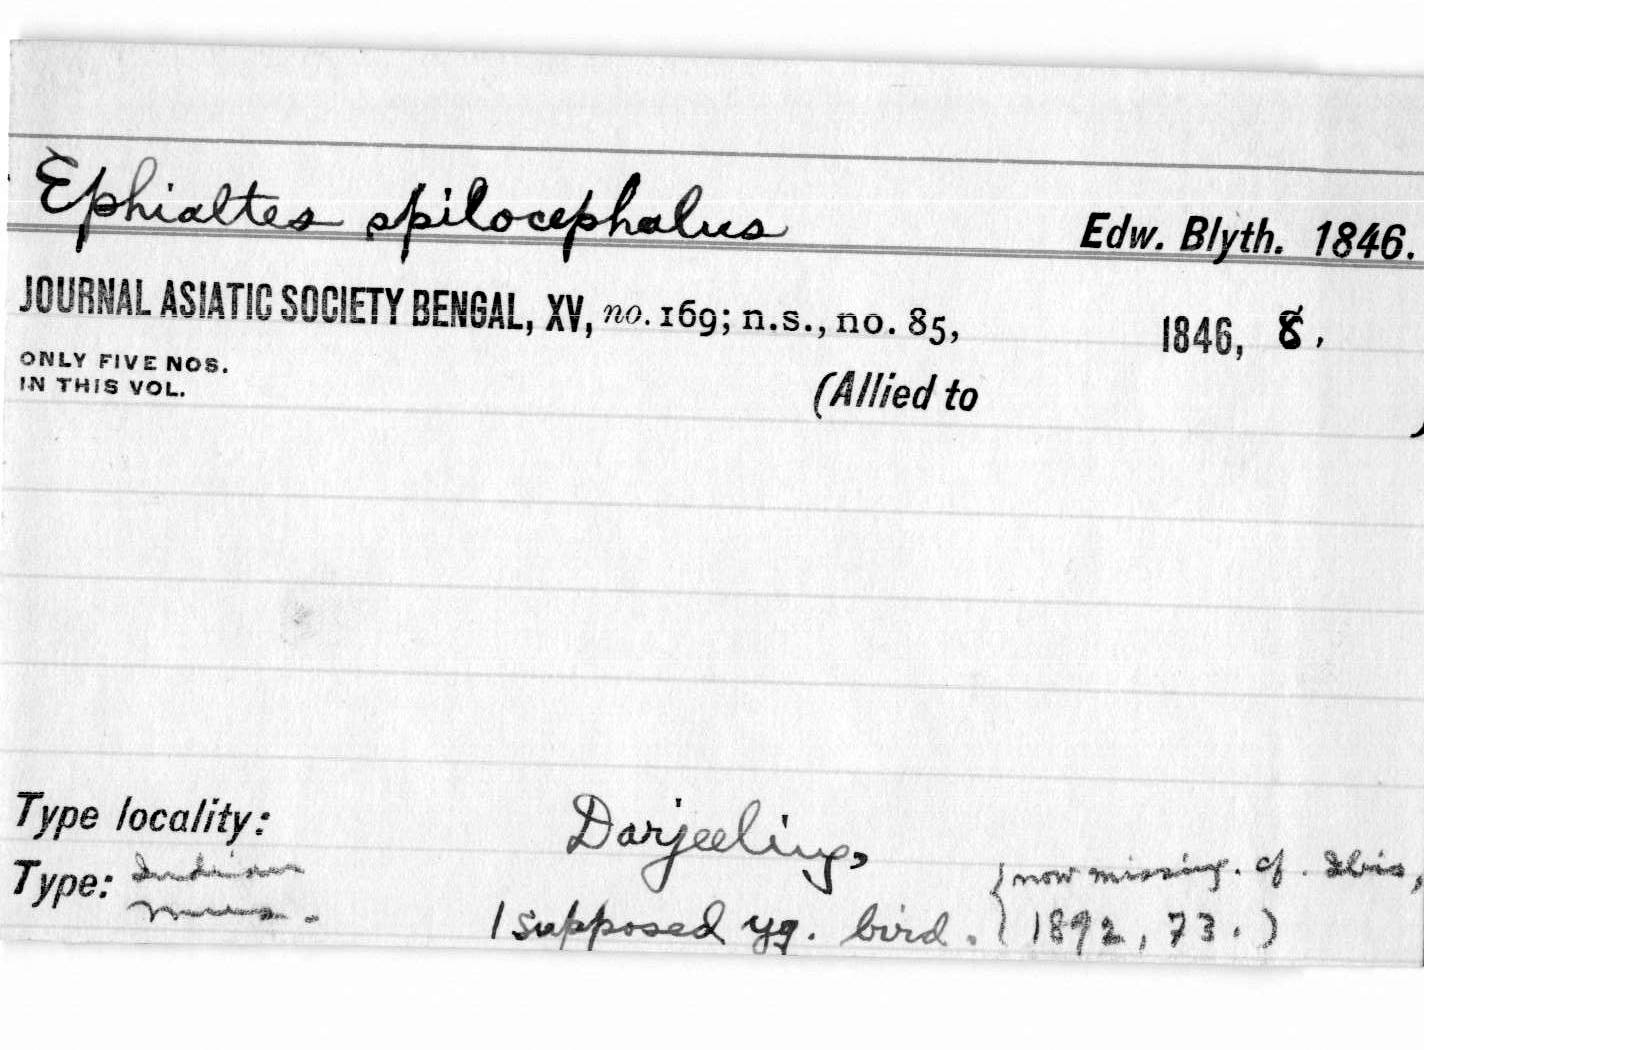 Ephialtes spilocephalus Edw. Blyth. 1846.
JOURNAL ASIATIC SOCIETY BENGAL, XV, no. 169; n.s., no. 85, 1846, 8.
ONLY FIVE NOS.
IN THIS VOL.
(Allied to )
Type locality: Darjeeling,
Type: Indian Mus. 1 supposed yg. bird. (now missing. cf. Ibis,
1892, 73.)